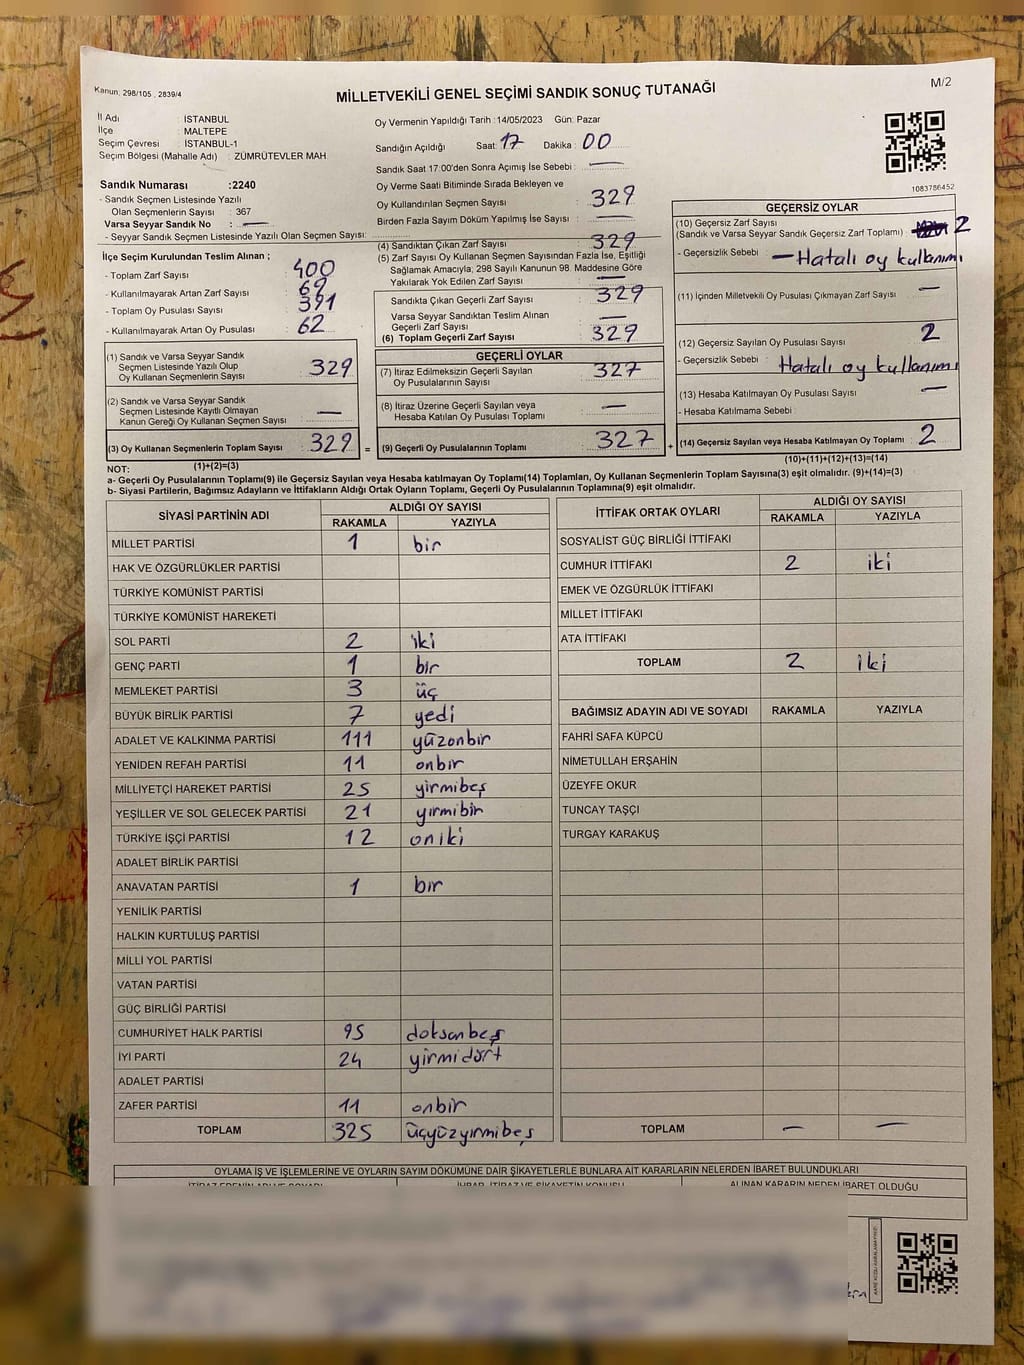 Kanun: 298/105 , 2839/4
MİLLETVEKİLİ GENEL SEÇİMİ SANDIK SONUÇ TUTANAĞI
M/2
İl Adı : İSTANBUL
İlçe : MALTEPE
Seçim Çevresi : İSTANBUL-1
Seçim Bölgesi (Mahalle Adı) : ZÜMRÜTEVLER MAH
Oy Vermenin Yapıldığı Tarih : 14/05/2023 Gün: Pazar
Sandığın Açıldığı Saat: 17 Dakika : 00
Sandık Saat 17:00'den Sonra Açımış İse Sebebi : —
Oy Verme Saati Bitiminde Sırada Bekleyen ve
Oy Kullandırılan Seçmen Sayısı : 329
Birden Fazla Sayım Döküm Yapılmış İse Sayısı : —
1083786452
Sandık Numarası :2240
- Sandık Seçmen Listesinde Yazılı
Olan Seçmenlerin Sayısı : 367
Varsa Seyyar Sandık No : —
- Seyyar Sandık Seçmen Listesinde Yazılı Olan Seçmen Sayısı:
İlçe Seçim Kurulundan Teslim Alınan ;
- Toplam Zarf Sayısı : 400
- Kullanılmayarak Artan Zarf Sayısı : 69
- Toplam Oy Pusulası Sayısı : 391
- Kullanılmayarak Artan Oy Pusulası : 62
(1) Sandık ve Varsa Seyyar Sandık
Seçmen Listesinde Yazılı Olup
Oy Kullanan Seçmenlerin Sayısı : 329
(2) Sandık ve Varsa Seyyar Sandık
Seçmen Listesinde Kayıtlı Olmayan
Kanun Gereği Oy Kullanan Seçmen Sayısı : —
(3) Oy Kullanan Seçmenlerin Toplam Sayısı : 329 =
(1)+(2)=(3)
(4) Sandıktan Çıkan Zarf Sayısı : 329
(5) Zarf Sayısı Oy Kullanan Seçmen Sayısından Fazla İse, Eşitliği
Sağlamak Amacıyla; 298 Sayılı Kanunun 98. Maddesine Göre
Yakılarak Yok Edilen Zarf Sayısı : —
Sandıkta Çıkan Geçerli Zarf Sayısı : 329
Varsa Seyyar Sandıktan Teslim Alınan
Geçerli Zarf Sayısı : —
(6) Toplam Geçerli Zarf Sayısı : 329
GEÇERLİ OYLAR
(7) İtiraz Edilmeksizin Geçerli Sayılan
Oy Pusulalarının Sayısı : 327
(8) İtiraz Üzerine Geçerli Sayılan veya
Hesaba Katılan Oy Pusulası Toplamı : —
(9) Geçerli Oy Pusulalarının Toplamı : 327 +
GEÇERSİZ OYLAR
(10) Geçersiz Zarf Sayısı
(Sandık ve Varsa Seyyar Sandık Geçersiz Zarf Toplamı) : 2
- Geçersizlik Sebebi : — Hatalı oy kullanımı
(11) İçinden Milletvekili Oy Pusulası Çıkmayan Zarf Sayısı : —
(12) Geçersiz Sayılan Oy Pusulası Sayısı : 2
- Geçersizlik Sebebi : Hatalı oy kullanımı
(13) Hesaba Katılmayan Oy Pusulası Sayısı : —
- Hesaba Katılmama Sebebi :
(14) Geçersiz Sayılan veya Hesaba Katılmayan Oy Toplamı : 2
(10)+(11)+(12)+(13)=(14)
NOT:
a- Geçerli Oy Pusulalarının Toplamı(9) ile Geçersiz Sayılan veya Hesaba katılmayan Oy Toplamı(14) Toplamları, Oy Kullanan Seçmenlerin Toplam Sayısına(3) eşit olmalıdır. (9)+(14)=(3)
b- Siyasi Partilerin, Bağımsız Adayların ve İttifakların Aldığı Ortak Oyların Toplamı, Geçerli Oy Pusulalarının Toplamına(9) eşit olmalıdır.
SİYASİ PARTİNİN ADI ALDIĞI OY SAYISI
RAKAMLA YAZIYLA
MİLLET PARTİSİ 1 bir
HAK VE ÖZGÜRLÜKLER PARTİSİ
TÜRKİYE KOMÜNİST PARTİSİ
TÜRKİYE KOMÜNİST HAREKETİ
SOL PARTİ 2 iki
GENÇ PARTİ 1 bir
MEMLEKET PARTİSİ 3 üç
BÜYÜK BİRLİK PARTİSİ 7 yedi
ADALET VE KALKINMA PARTİSİ 111 yüzonbir
YENİDEN REFAH PARTİSİ 11 onbir
MİLLİYETÇİ HAREKET PARTİSİ 25 yirmibeş
YEŞİLLER VE SOL GELECEK PARTİSİ 21 yirmibir
TÜRKİYE İŞÇİ PARTİSİ 12 oniki
ADALET BİRLİK PARTİSİ
ANAVATAN PARTİSİ 1 bir
YENİLİK PARTİSİ
HALKIN KURTULUŞ PARTİSİ
MİLLİ YOL PARTİSİ
VATAN PARTİSİ
GÜÇ BİRLİĞİ PARTİSİ
CUMHURİYET HALK PARTİSİ 95 doksanbeş
İYİ PARTİ 24 yirmidört
ADALET PARTİSİ
ZAFER PARTİSİ 11 onbir
TOPLAM 325 üçyüzyirmibeş
İTTİFAK ORTAK OYLARI ALDIĞI OY SAYISI
RAKAMLA YAZIYLA
SOSYALİST GÜÇ BİRLİĞİ İTTİFAKI
CUMHUR İTTİFAKI 2 iki
EMEK VE ÖZGÜRLÜK İTTİFAKI
MİLLET İTTİFAKI
ATA İTTİFAKI
TOPLAM 2 iki
BAĞIMSIZ ADAYIN ADI VE SOYADI RAKAMLA YAZIYLA
FAHRİ SAFA KÜPCÜ
NİMETULLAH ERŞAHİN
ÜZEYFE OKUR
TUNCAY TAŞÇI
TURGAY KARAKUŞ
TOPLAM — —
OYLAMA İŞ VE İŞLEMLERİNE VE OYLARIN SAYIM DÖKÜMÜNE DAİR ŞİKAYETLERLE BUNLARA AİT KARARLARIN NELERDEN İBARET BULUNDUKLARI
İTİRAZ EDENİN ADI VE SOYADI İHBAR, İTİRAZ VE ŞİKAYETİN KONUSU ALINAN KARARIN NEDEN İBARET OLDUĞU